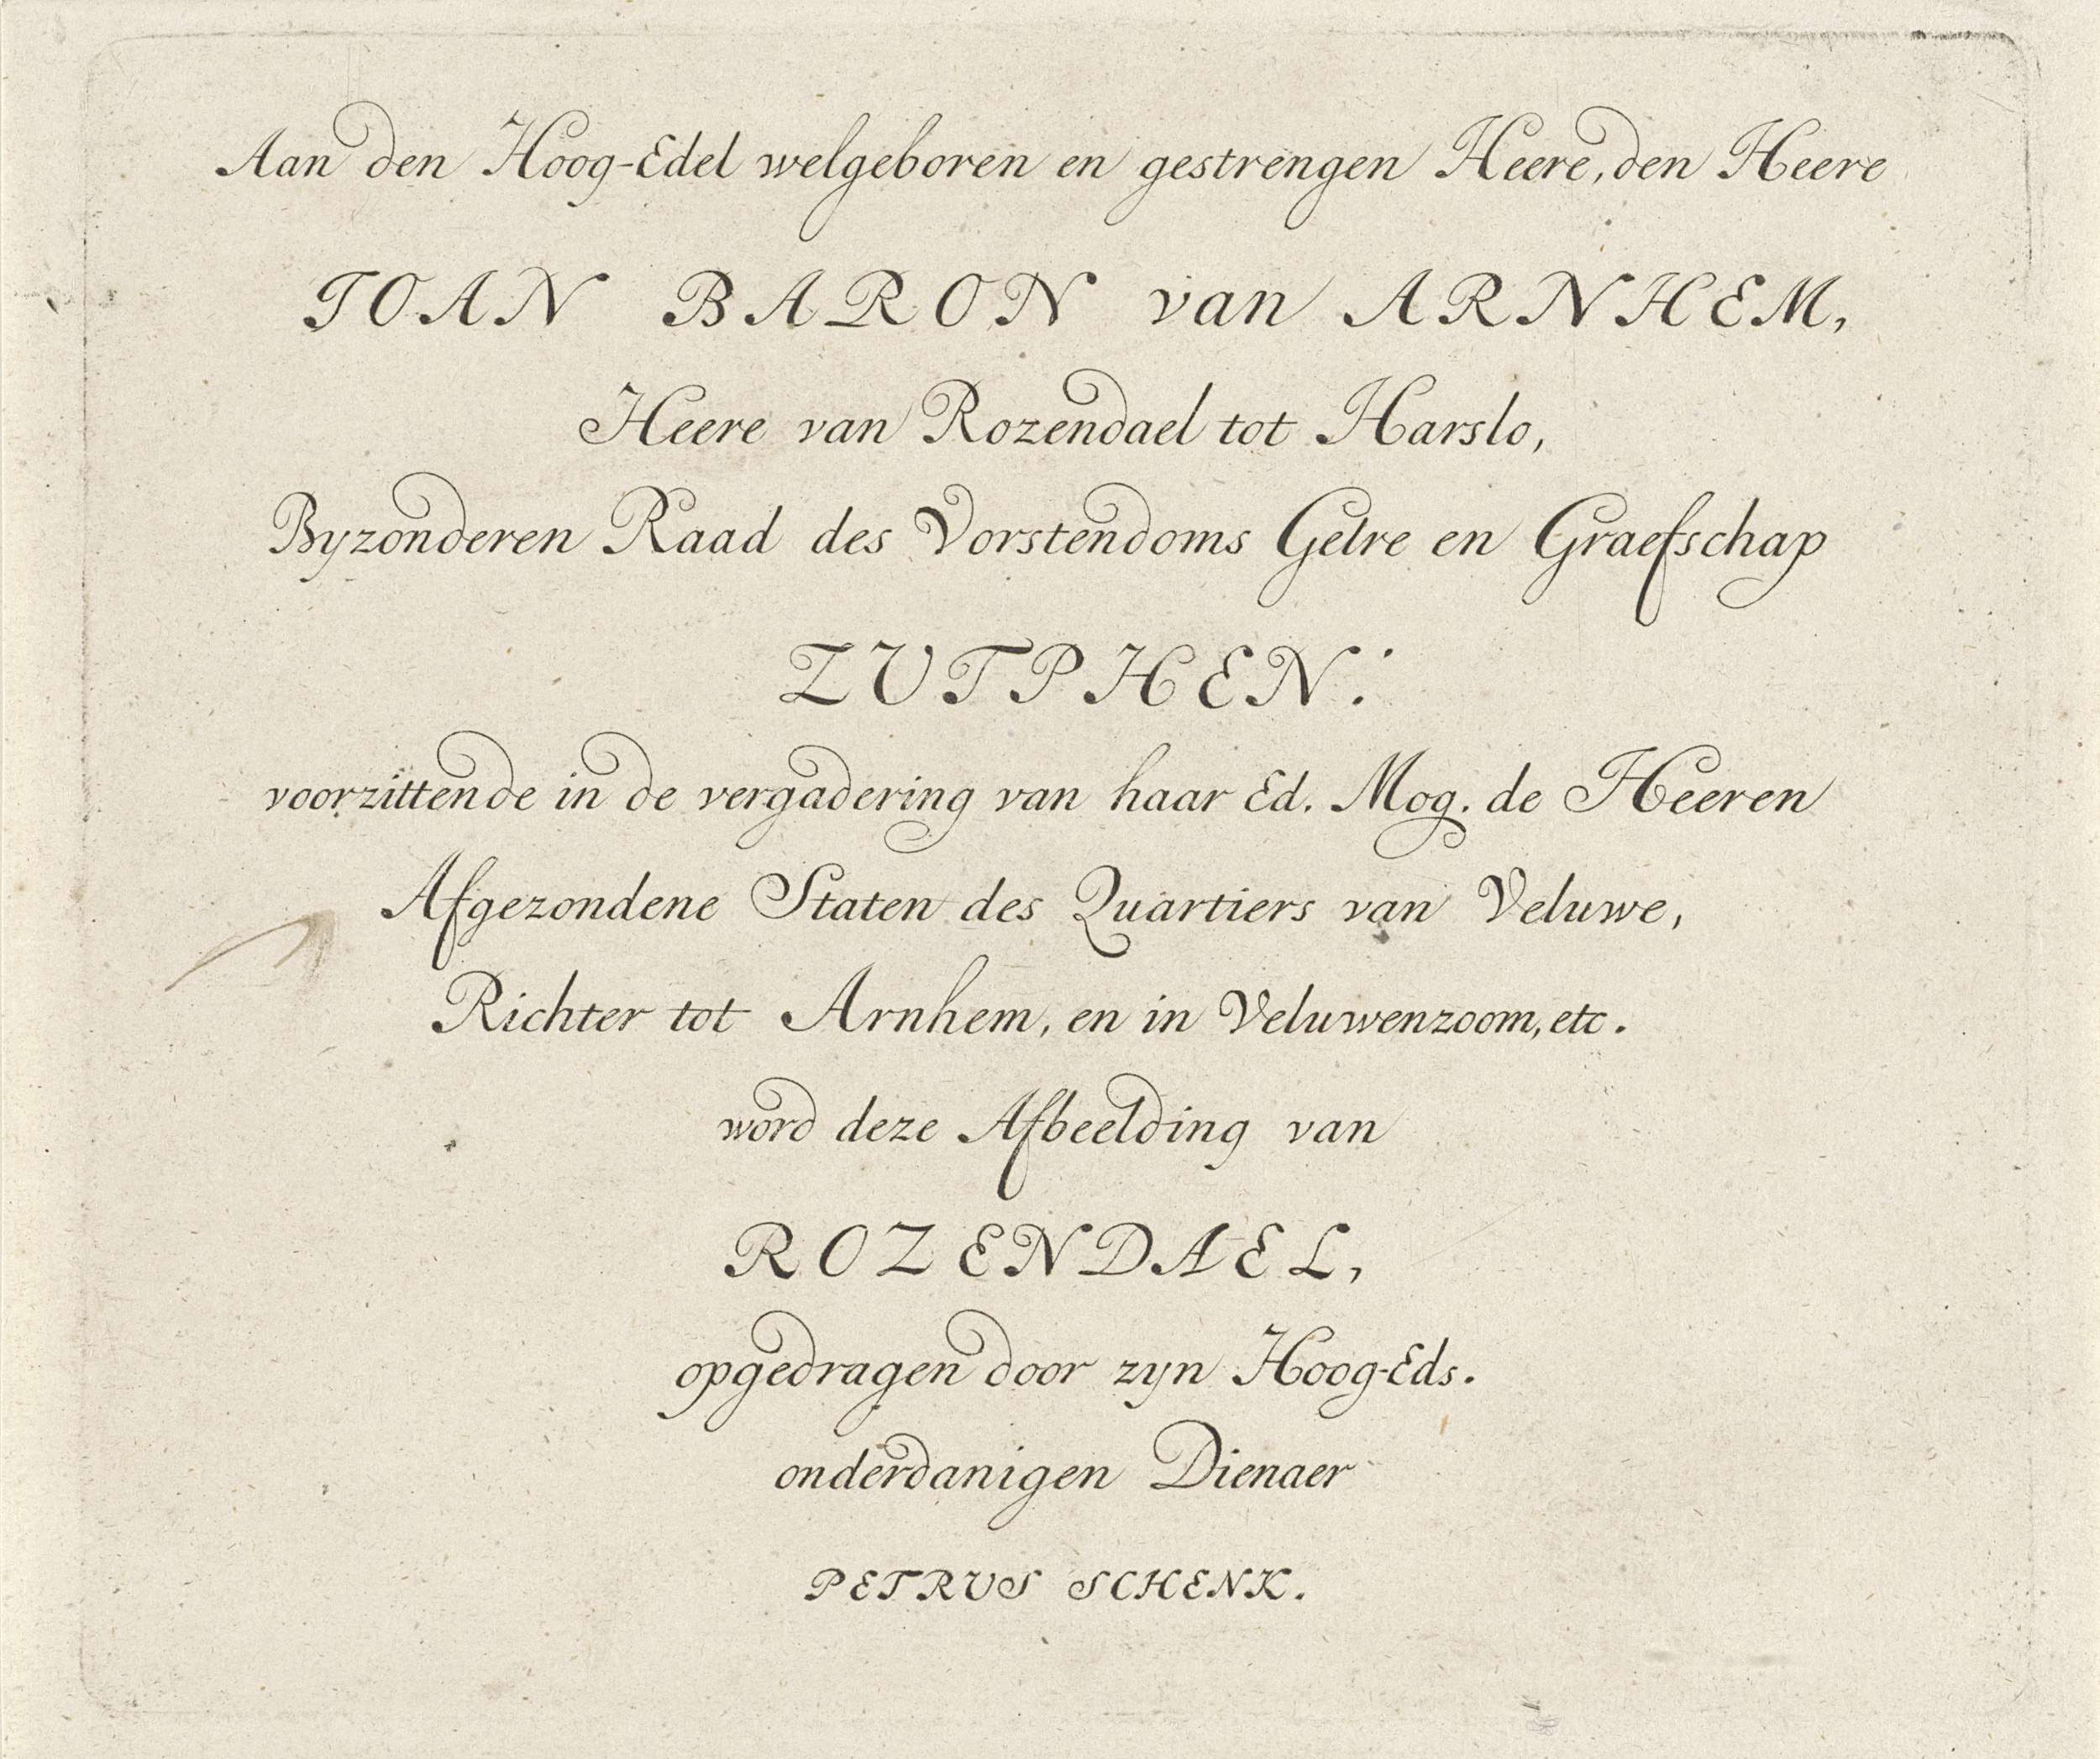 Aan den Hoog-Edel welgeboren en gestrengen Heere, den Heere
IOAN BARON van ARNHEM,
Heere van Rozendael tot Harslo,
Byzonderen Raad des Vorstendoms Gelre en Graefschap
ZUTPHEN:
voorzittende in de vergadering van haar Ed. Mog. de Heeren
Afgezondene Staten des Quartiers van Veluwe,
Richter tot Arnhem, en in Veluwenzoom, etc.
word deze Afbeelding van
ROZENDAEL,
opgedragen door zyn Hoog-Eds.
onderdanigen Dienaer
PETRUS SCHENK.